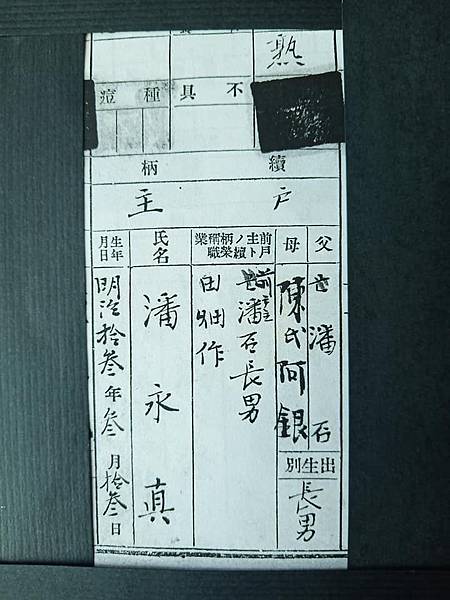 熟
不具
種痘
續柄
戶主
父
亡潘石
母
陳氏阿銀
出生別
長男
前戶主トノ續柄榮稱職業
前戶主潘石長男
田畑作
氏名
潘永真
生年月日
明治拾叁年叁月拾叁日